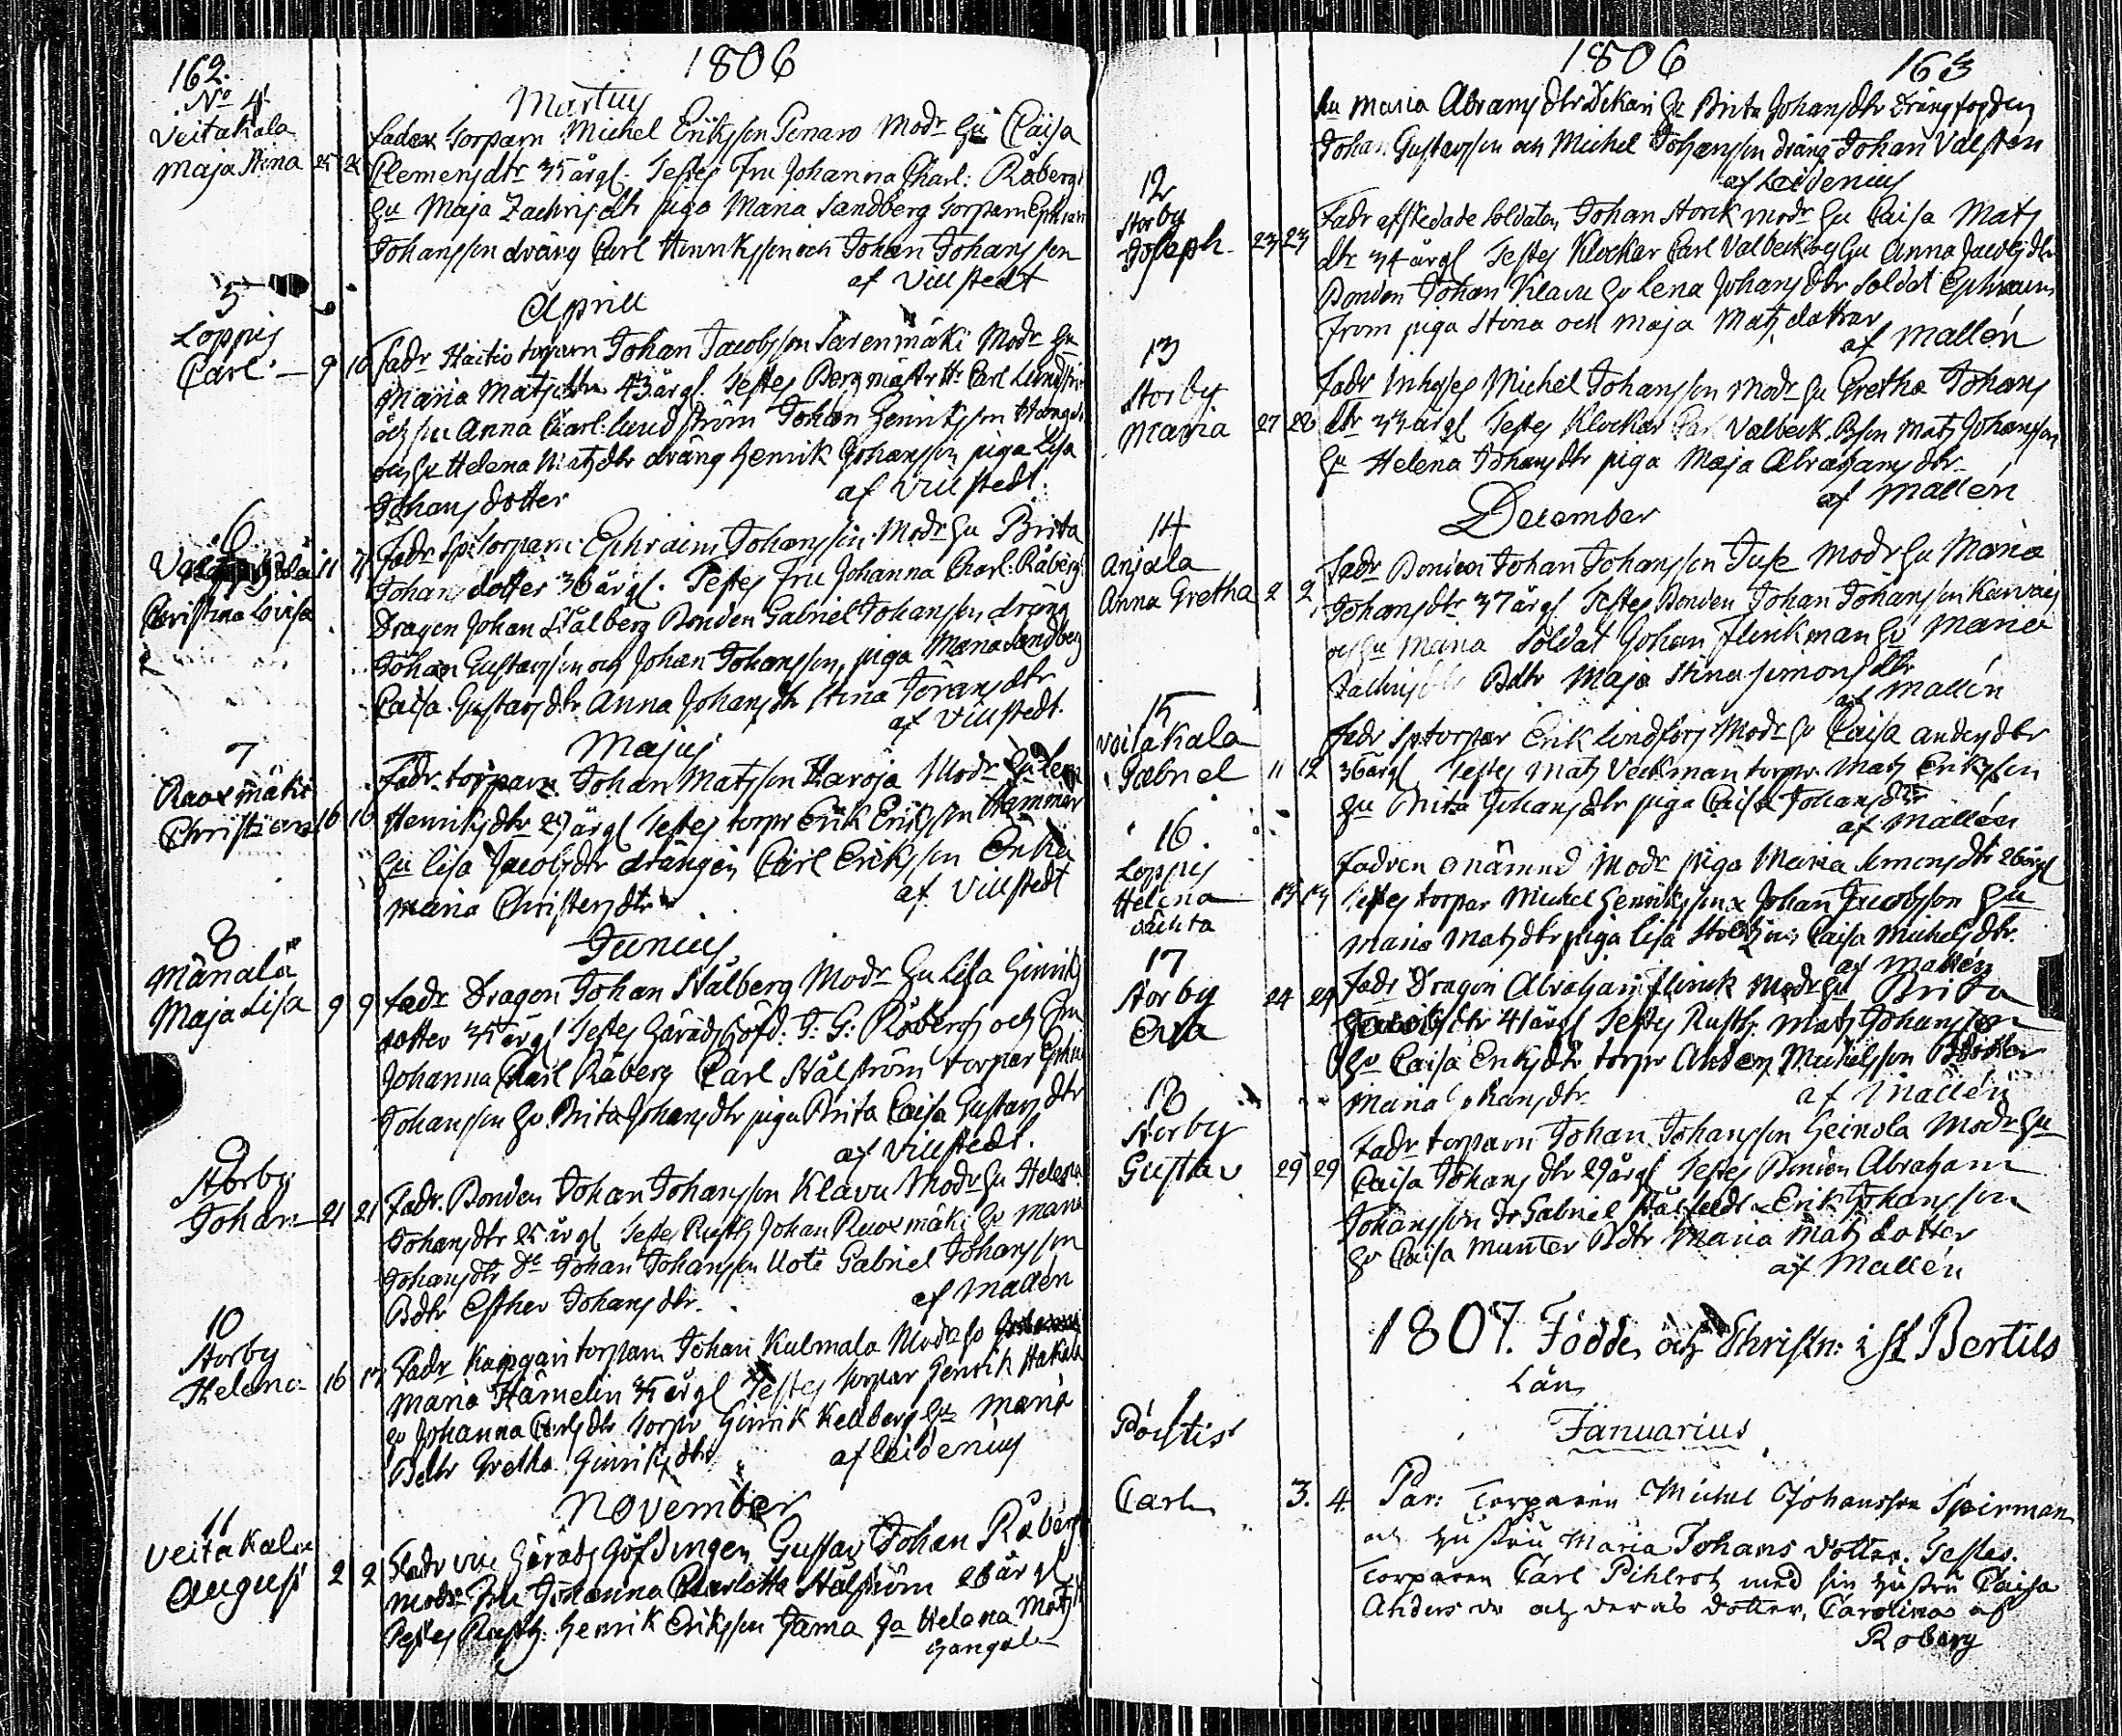 162.
1806
No 4.
Martius
Veitakala
Maja Stina 25 26
Fader Torparn Michel Eriksson Penaro Modr Hu Caisa
Clemens dtr 35 årgl. Testes Fru Johanna Charl: Råbergh
Hu Maja Zachris dtr piga Maria Sandberg Torparn Ephraim
Johansson dräng Carl Henriksson och Johan Johansson
af Villstedt
Aprill
5
Loppis
Carl 9 10
Fadr Haitio torparn Johan Jacobsson Sarenmäki Modr Hu
Maria Mats dtr 43 årgl. Testes Bergmästr Hr Carl Lundström
och fru Anna Charl: Lundström Johan Henriksson
och Hu Helena Mats dtr dräng Henrik Johansson piga Lisa
Johans dotter
af Villstedt.
6
11 11
Christina Lovisa
Fadr Sp: Torparn Ephraim Johansson Modr Hu Brita
Johans dotter 36 årgl. Testes Fru Johanna Charl: Råbergh
Dragon Johan Stålberg Bonden Gabriel Johansson dräng
Johan Gustavsson och Johan Johansson, piga Maria Sandberg
Caisa Gustavs dtr Anna Johans dtr Stina Jörans dtr
af Villstedt.
Majus
7
Ruoxmäki
Christian 16 16
Fadr torparn Johan Matsson Haroja Modr Hu Lena
Henriks dtr 29 årgl Testes torpr Erik Eriksson Hammar
Hu Lisa Jacobs dtr drängen Carl Eriksson Enkan
Maria Christers dtr
af Villstedt
Junius
8
Mänälä
Maja Lisa 9 9
Fadr Dragon Johan Stålberg Modr Hu Lisa Hinriks
dotter 35 årgl Testes Häradshöfd: J: G: Råbergh och Fru
Johanna Charl Råberg Carl Stålström torpar Ephr
Johansson Hu Brita Johans dtr piga Brita Caisa Gustavs dtr
af Villstedt.
9
Storby
Johan 21 21
Fadr. Bonden Johan Johansson Klavu Modr Hu Helena
Johans dtr 25 årgl Testes Rusth Johan Ruoxmäki Hu Maria
Johans dtr Do Johan Johansson Uoti Gabriel Johansson
Bdtr Esther Johans dtr.
af Mallén
10
Storby
Helena 16 17
Fadr torparn Johan Kulmala Modr Hu
Maria Hämelin 35 årgl Testes torpar Henrik Hakala
Hu Johanna Carls dtr torpr Hinrik Kellberg Hu Maria
Bdtr Gretha Hinriks dtr
af Leidenius
November
11
Veitakala
August 2 2
Fadr vice Häradshöfdingen Gustav Johan Råbergh
Modr Fru Johanna Charlotta Stålström 26 årgl
Testes Rusth. Henrik Eriksson Jama Hu Helena Mats
Gangal
1806
163
Hu Maria Abrams dtr Dikari Hu Brita Johans dtr drängfogden
Johan Gustavsson och Michel Johansson dräng Johan Valsten
af Leidenius
12
Storby
Joseph 23 23
Fadr afskedade Soldaten Johan Storck modr Hu Caisa Mats
dtr 34 årgl Testes Klockar Carl Valbeck och Hu Anna Jacobs dtr
Bonden Johan Klavu Hu Lena Johans dtr Soldat Ephraim
From piga Stina och Maja Mats döttrar
af Mallén
13
Storby
Maria 27 28
Fadr Inhyses Michel Johansson Modr Hu Gretha Johans
dtr 33 årgl Testes Klockar Carl Valbeck Bson Mats Johansson
Hu Helena Johans dtr piga Maja Abrahams dtr
af Mallén
December
14
Anjala
Anna Gretha 2 2
Fadr Bonden Johan Johansson Modr Hu Maria
Johans dtr 37 årgl Testes Bonden Johan Johansson
och Hu Maria Soldat Johan Flinkman Hu Maria
Zachris dtr Bdtr Maja Stina Simons dtr
af Mallén
15
Veitakala
Gabriel 11 12
Fadr Sp. torpar Erik Lindfors Modr Hu Caisa Anders dtr
36 årgl Testes Mats Veckman torpr. Mats Eriksson
Hu Brita Johans dtr piga Caisa Johans dtr
af Mallén
16.
Loppis
Helena 13 13
oächta
Fadren onämnd Modr piga Maria Simons dtr 26 årgl
Testes torpar Michel Henriksson Johan Jacobsson Hu
Maria Mats dtr piga Lisa Caisa Michels dtr.
af Mallén
17
Storby
Eva 24 24
Fadr Dragon Abraham Flinck Modr Hu Brita
dtr 41 årgl Testes Rusth. Mats Johansson
Hu Caisa Eriks dtr torpr Anders Michelsson
Maria Johans dtr.
af Mallén
18
Storby
Gustav 29 29
Fadr torparn Johan Johansson Heinola Modr Hu
Caisa Johans dtr 29 årgl Testes Bonden Abraham
Johansson Dr Gabriel Erik Johansson
Hu Caisa Munter Bdtr Maria Mats dotter
af Mallén
1807. Födde och Christn: i St Bertils
Län
Januarius
1
Pörtis
Carl 3. 4.
Par: Torparen Michel Johansson Spirman
och Hustru Maria Johans dotter. Testes.
Torparen Carl Pihlrot med sin hustru Caisa
Anders dr och deras dotter, Carolina af
Roberg